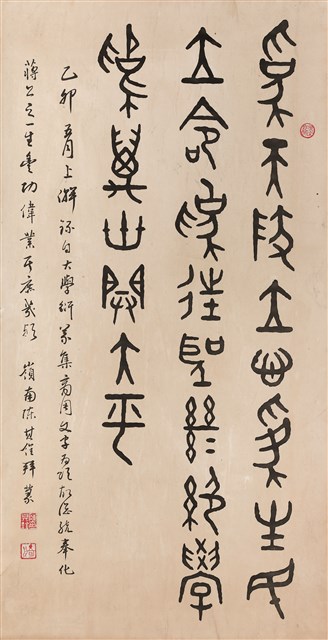 為天地立心為生民
立命為往聖繼絕學
為萬世開太平
乙卯五月上澣錄自大學衍義集商周文字為頌故總統奉化
蔣公之一生豐功偉業其庶幾歟嶺南陳其銓拜篆